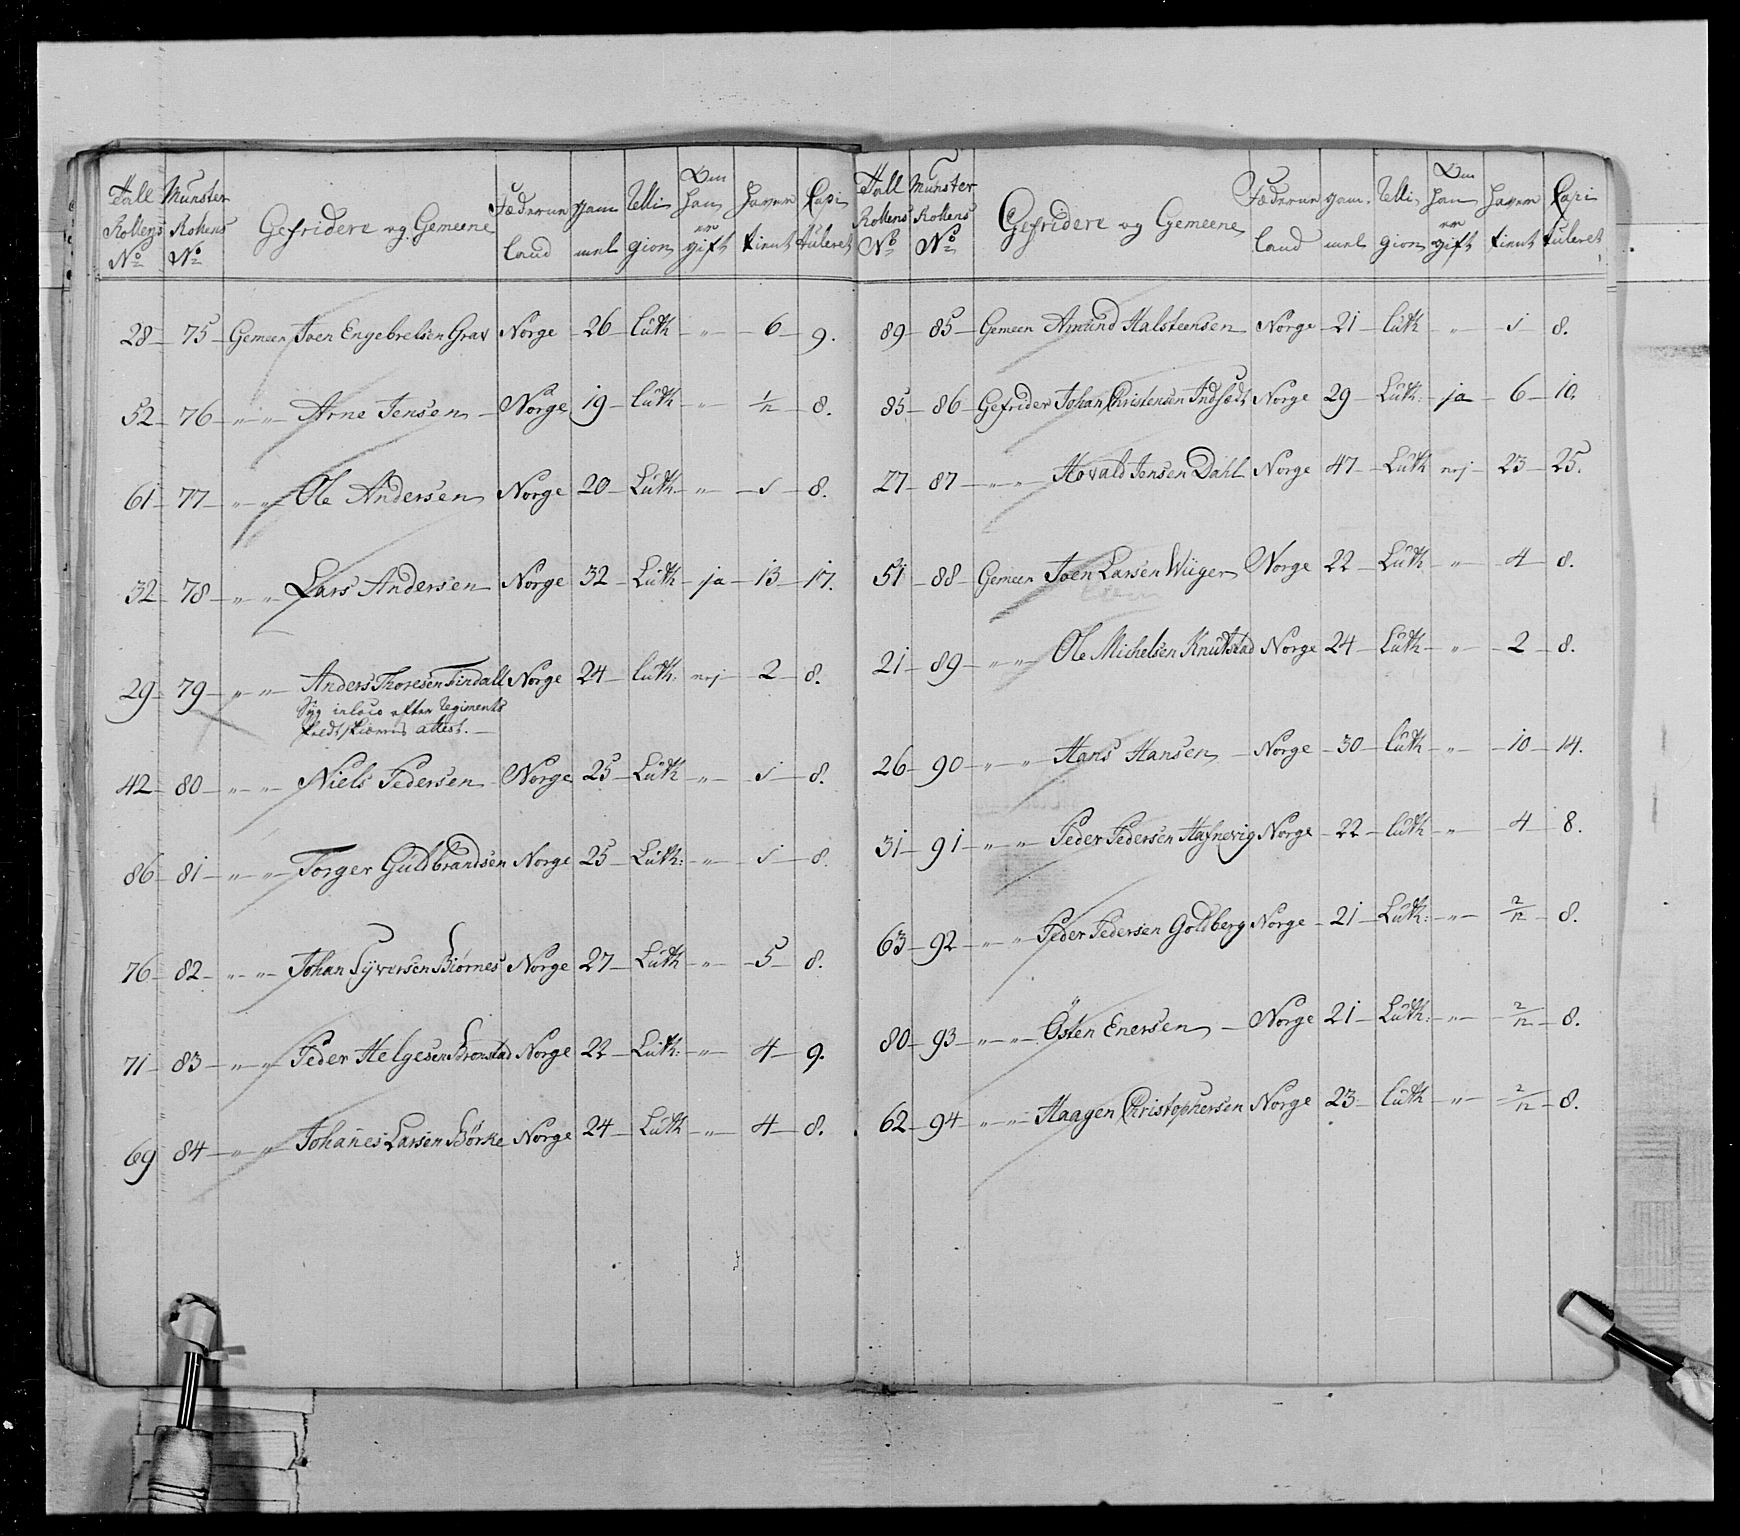 Tall Rollens No | Munster Rollens No | Gefridere og Gemeene | Fæderne land | gam mel | Relli gion | Om han er gift | haver tient | Capi tuleret
28 – 75 – Gemeen Joen Engebretsen Grav | Norge | 26 | luth | " | 6 | 9.
52 – 76 – " " Arne Jensen | Norge | 19 | luth | " | 1/12 | 8.
61 – 77 – " " Ole Andersen | Norge | 20 | Luth | " | 1 | 8.
32 – 78 – " " Lars Andersen | Norge | 32 | Luth | ja | 13 | 17.
29 – 79 – " " Anders Thoresen Tindall | Norge | 24 | luth: | nej | 2 | 8.
Syg in loco efter Regiments
feldtskiærers attest.
42 – 80 – " " Niels Pedersen | Norge | 25 | Luth | " | 1 | 8.
86 – 81 – " " Torger Guldbrandsen | Norge | 25 | Luth: | " | 1 | 8.
76 – 82 – " " Johan Syversen Biørnes | Norge | 27 | Luth | " | 5 | 8.
71 – 83 – " " Peder Helgesen Bronstad | Norge | 22 | Luth: | " | 4 | 9.
69 – 84 – " " Johanes Larsen Børke | Norge | 24 | Luth | " | 4 | 8.
Tall Rollens No | Munster Rollens No | Gefridere og Gemeene | Fæderne land | gam mel | Relli gion | Om han er gift | haver tient | Capi tuleret
89 – 85 – Gemeen Amund Halsteensen | Norge | 21 | luth | " | 1 | 8.
85 – 86 – Gefrider Johan Christensen | Norge | 29 | Luth: | ja | 6 | 10.
27 – 87 – " " Hovald Jensen Dahl | Norge | 47 | Luth | nej | 23 | 25.
51 – 88 – Gemeen Joen Larsen Wiiger | Norge | 22 | Luth | " | 4 | 8.
21 – 89 – " " Ole Michelsen Knutstad | Norge | 24 | Luth | " | 2 | 8.
26 – 90 – " " Hans Hansen | Norge | 30 | luth | " | 10 | 14.
31 – 91 – " " Peder Pedersen Hafnevig | Norge | 22 | luth | " | 4 | 8.
63 – 92 – " " Peder Pedersen Goldberg | Norge | 21 | Luth: | " | 2/12 | 8.
80 – 93 – " " Östen Enersen | Norge | 21 | Luth: | " | 2/12 | 8.
62 – 94 – " " Haagen Christophersen | Norge | 23 | luth | " | 2/12 | 8.